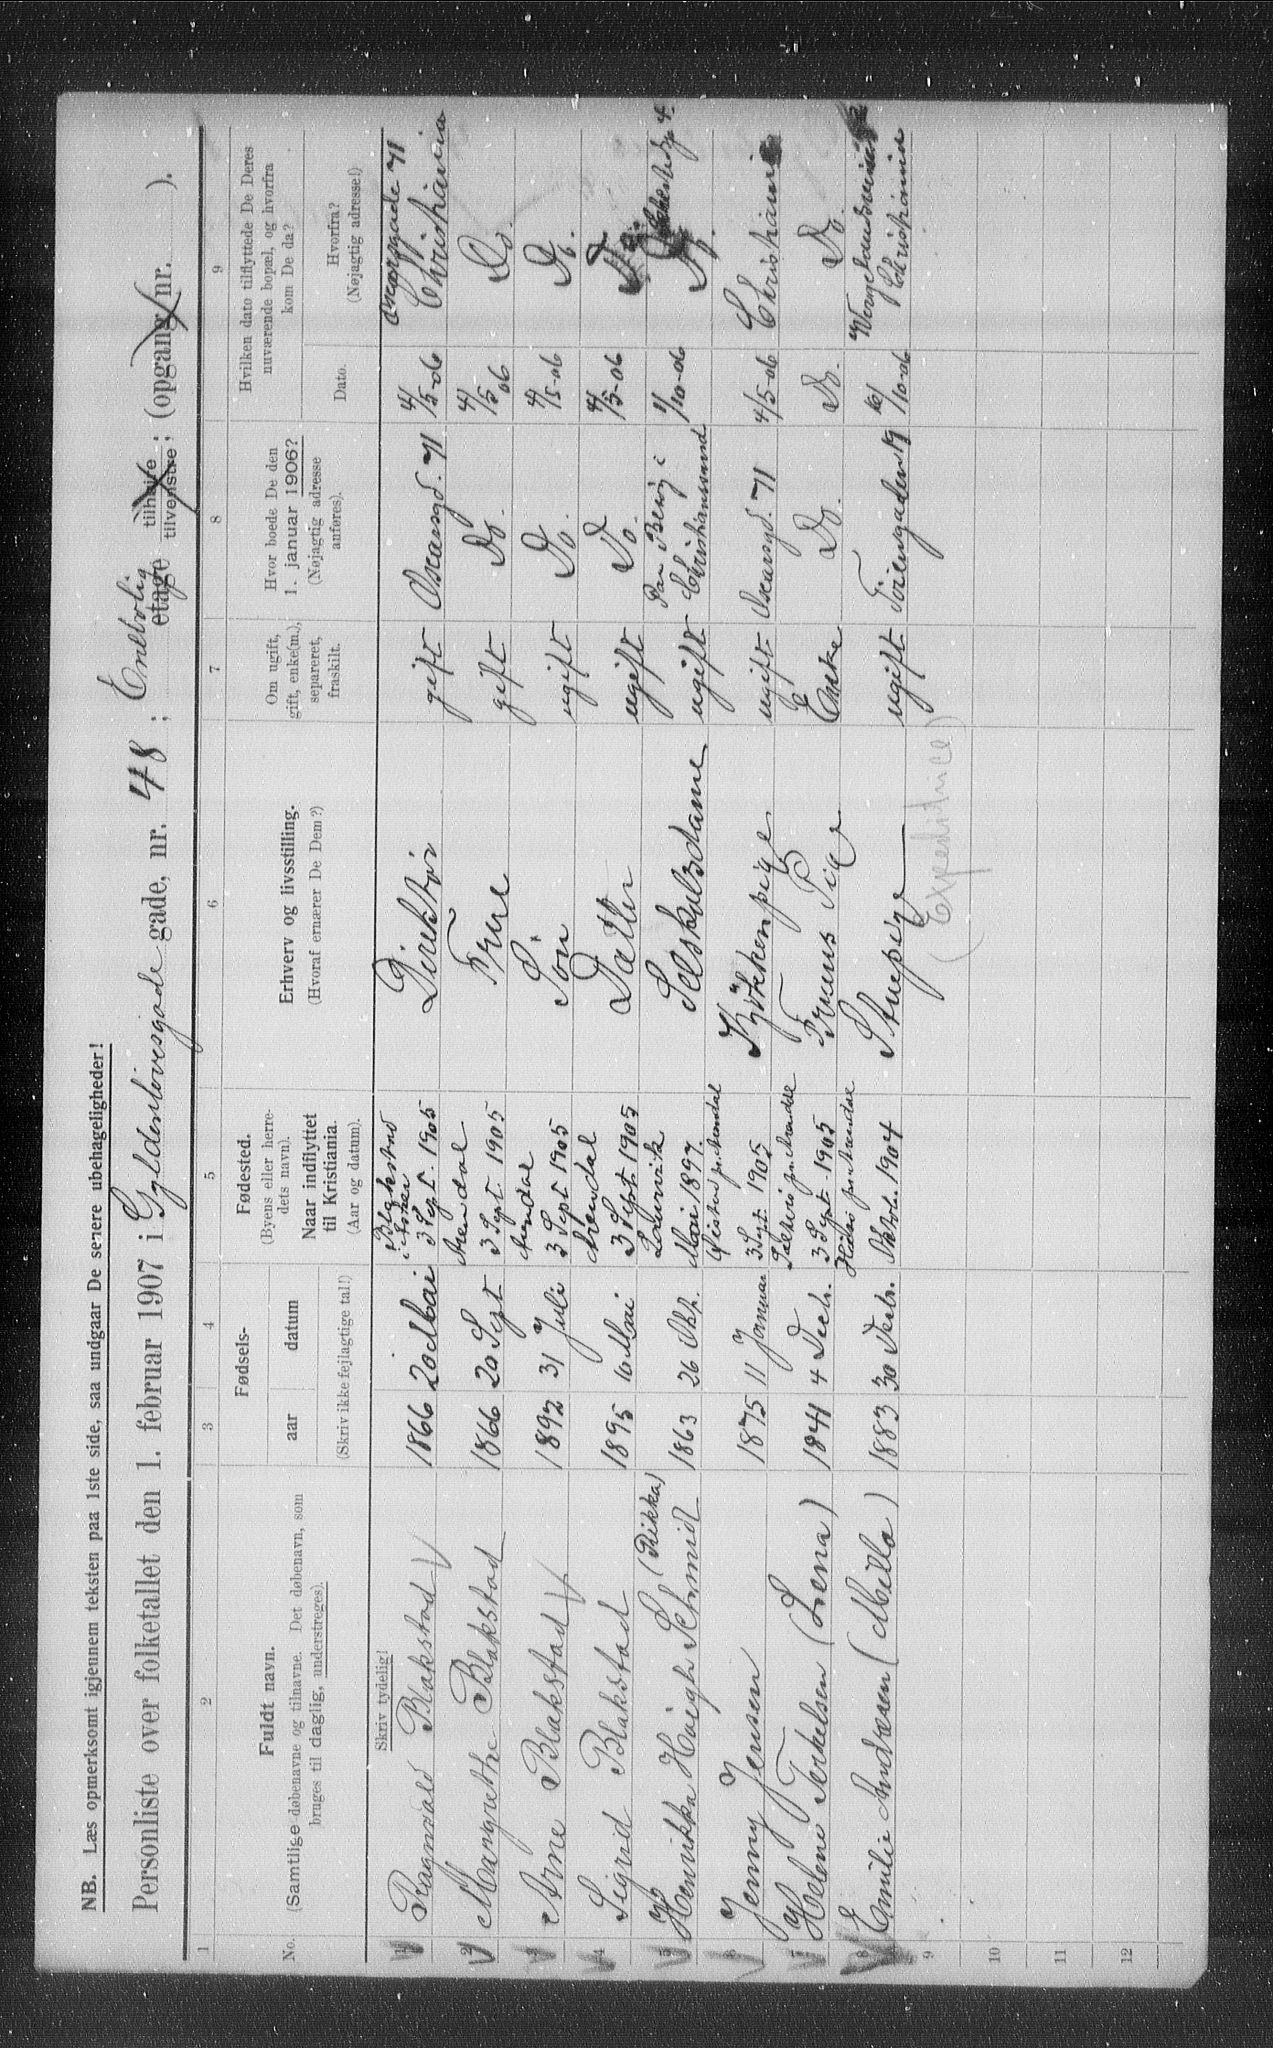 NB. Læs opmerksomt igjennem teksten paa 1ste side, saa undgaar De senere ubehageligheder!
Personliste over folketallet den 1. februar 1907 i Gyldenløvesgade gade, nr. 48; Enebolig etage tilhøire tilvenstre; (opgang nr. ).
1 2 3 4 5 6 7 8 9
No.
Fuldt navn.
(Samtlige døbenavne og tilnavne. Det døbenavn, som
bruges til daglig, understreges).
Fødsels-
aar datum
(Skriv ikke fejlagtige tal!)
Fødested.
(Byens eller herre-
dets navn).
Naar indflyttet
til Kristiania.
(Aar og datum).
Erhverv og livsstilling.
(Hvoraf ernærer De Dem?)
Om ugift,
gift, enke(m.),
separeret,
fraskilt.
Hvor boede De den
1. januar 1906?
(Nøjagtig adresse
anføres).
Hvilken dato tilflyttede De Deres
nuværende bopæl, og hvorfra
kom De da?
Dato.
Hvorfra?
(Nøjagtig adresse!)
Skriv tydelig!
1 Ragnvald Blakstad 1866 20 Mai Blakstad i Asker 3 Sept. 1905 Direktør gift Oscarsgd. 71 4/5-06 Oscarsgade 71 Christiania
2 Margrethe Blakstad 1866 20 Sept Arendal 3 Sept. 1905 Frue gift Do. 4/5 06 Do.
3 Arne Blakstad 1892 31 Juli Arendal 3 Sept 1905 Søn ugift Do. 4/5-06 Do.
4 Sigrid Blakstad 1895 6 Mai Arendal 3 Sept 1905 Datter ugift Do. 4/5-06
5 Henrikka Høegh Schmidt (Rikka) 1863 26 Okt. Laurvik Mai 1897. Selskabsdame ugift Paa Besøg i Christianssund 1/10-06
6 Jenny Jensen 1875 11 Januar pr. Arendal 3 Sept. 1905 Kjøkkenpige ugift Oscarsgd. 71 4/5-06 Christiania
7 Helene Terkelsen (Lena) 1841 4 Decb. pr. Arendal 3 Sept. 1905 Fruens Pige Enke Do. Do. Do.
8 Emilie Andresen (Milla) 1883 30 Decbr. pr. Arendal Oktbr. 1904 Stuepige ugift 19 1/10-06 Christiania
(Expeditrice)
9
10
11
12